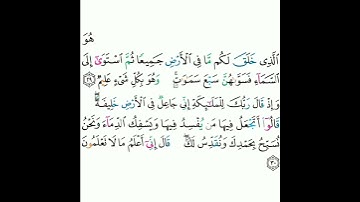 هُوَ
الَّذِى خَلَقَ لَكُم مَّا فِى الْأَرْضِ جَمِيعًا ثُمَّ اسْتَوَىٰٓ إِلَى
السَّمَآءِ فَسَوَّىٰهُنَّ سَبْعَ سَمَٰوَٰتٍ ۚ وَهُوَ بِكُلِّ شَىْءٍ عَلِيمٌ ٢٩
وَإِذْ قَالَ رَبُّكَ لِلْمَلَٰٓئِكَةِ إِنِّى جَاعِلٌ فِى الْأَرْضِ خَلِيفَةً ۖ
قَالُوٓا۟ أَتَجْعَلُ فِيهَا مَن يُفْسِدُ فِيهَا وَيَسْفِكُ الدِّمَآءَ وَنَحْنُ
نُسَبِّحُ بِحَمْدِكَ وَنُقَدِّسُ لَكَ ۖ قَالَ إِنِّىٓ أَعْلَمُ مَا لَا تَعْلَمُونَ ٣٠